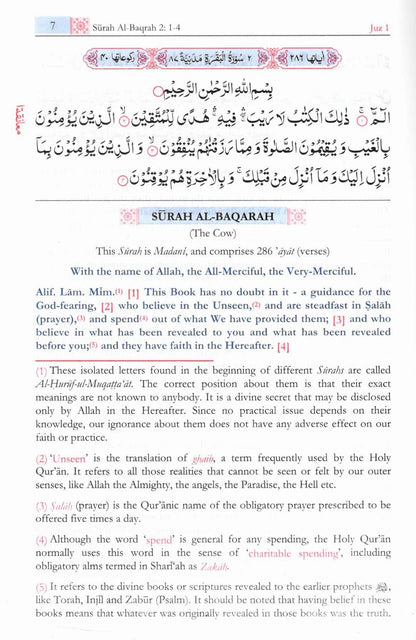 7 Sūrah Al-Baqrah 2: 1-4 Juz 1
اٰیاتها ٢٨٦ ٢ سُوْرَةُ الْبَقَرَةِ مَدَنِيَّةٌ ٨٧ رکوعاتها ٤٠
بِسْمِ اللّٰهِ الرَّحْمٰنِ الرَّحِيْمِ
الٓمّٓ ۝١ ذٰلِكَ الْكِتٰبُ لَا رَيْبَ ۛ فِيْهِ ۛ هُدًى لِّلْمُتَّقِيْنَ ۝٢ الَّذِيْنَ يُؤْمِنُوْنَ
بِالْغَيْبِ وَ يُقِيْمُوْنَ الصَّلٰوةَ وَ مِمَّا رَزَقْنٰهُمْ يُنْفِقُوْنَ ۝٣ وَ الَّذِيْنَ يُؤْمِنُوْنَ بِمَاۤ
اُنْزِلَ اِلَيْكَ وَ مَاۤ اُنْزِلَ مِنْ قَبْلِكَ ۚ وَ بِالْاٰخِرَةِ هُمْ يُوْقِنُوْنَ ۝٤
SŪRAH AL-BAQARAH
(The Cow)
This Sūrah is Madanī, and comprises 286 'āyāt (verses)
With the name of Allah, the All-Merciful, the Very-Merciful.
Alif. Lām. Mīm.(1) [1] This Book has no doubt in it - a guidance for the
God-fearing, [2] who believe in the Unseen,(2) and are steadfast in Ṣalāh
(prayer),(3) and spend(4) out of what We have provided them; [3] and who
believe in what has been revealed to you and what has been revealed
before you;(5) and they have faith in the Hereafter. [4]
(1) These isolated letters found in the beginning of different Sūrahs are called
Al-Ḥurūf-ul-Muqaṭṭa'āt. The correct position about them is that their exact
meanings are not known to anybody. It is a divine secret that may be disclosed
only by Allah in the Hereafter. Since no practical issue depends on their
knowledge, our ignorance about them does not have any adverse effect on our
faith or practice.
(2) 'Unseen' is the translation of ghaib, a term frequently used by the Holy
Qur'ān. It refers to all those realities that cannot be seen or felt by our outer
senses, like Allah the Almighty, the angels, the Paradise, the Hell etc.
(3) Ṣalāh (prayer) is the Qur'ānic name of the obligatory prayer prescribed to be
offered five times a day.
(4) Although the word 'spend' is general for any spending, the Holy Qur'ān
normally uses this word in the sense of 'charitable spending', including
obligatory alms termed in Sharī'ah as Zakāh.
(5) It refers to the divine books or scriptures revealed to the earlier prophets ,
like Torah, Injīl and Zabūr (Psalm). It should be noted that having belief in these
books means that whatever was originally revealed in those books was the truth.